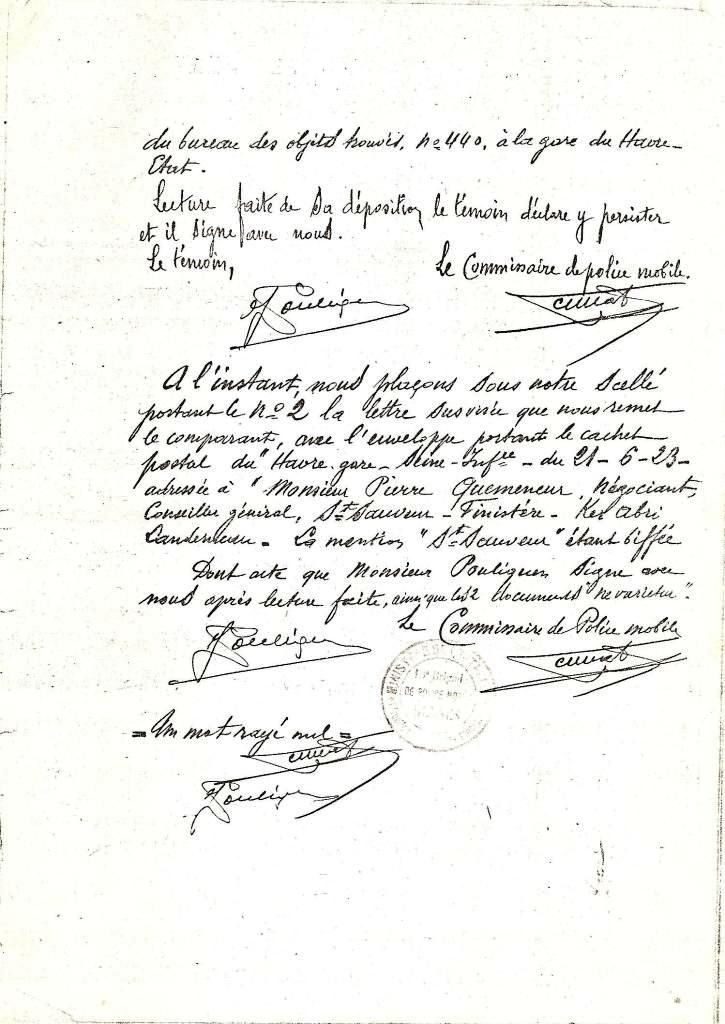 du bureau des objets trouvés, Nº 440, à la gare du Havre-
Etat.
Lecture faite de sa déposition, le témoin déclare y persister
et il signe avec nous.
Le témoin,
Le Commissaire de police mobile.
Pouliquen
A l'instant, nous plaçons sous notre scellé
portant le Nº 2 la lettre susvisée que nous remet
le comparant, avec l'enveloppe portant le cachet
postal du "Havre-gare-Seine-Infre-du 21-6-23-
adressée à "Monsieur Pierre Quemeneur, Négociant,
Conseiller général, St Sauveur-Finistère-Ker Abri
Landerneau. La mention "St Sauveur" étant biffée
Dont acte que Monsieur Pouliquen signe avec
nous après lecture faite, ainsi que les 2 documents "Ne varietur".
Le Commissaire de Police mobile
Pouliquen
= Un mot rayé nul =
Pouliquen